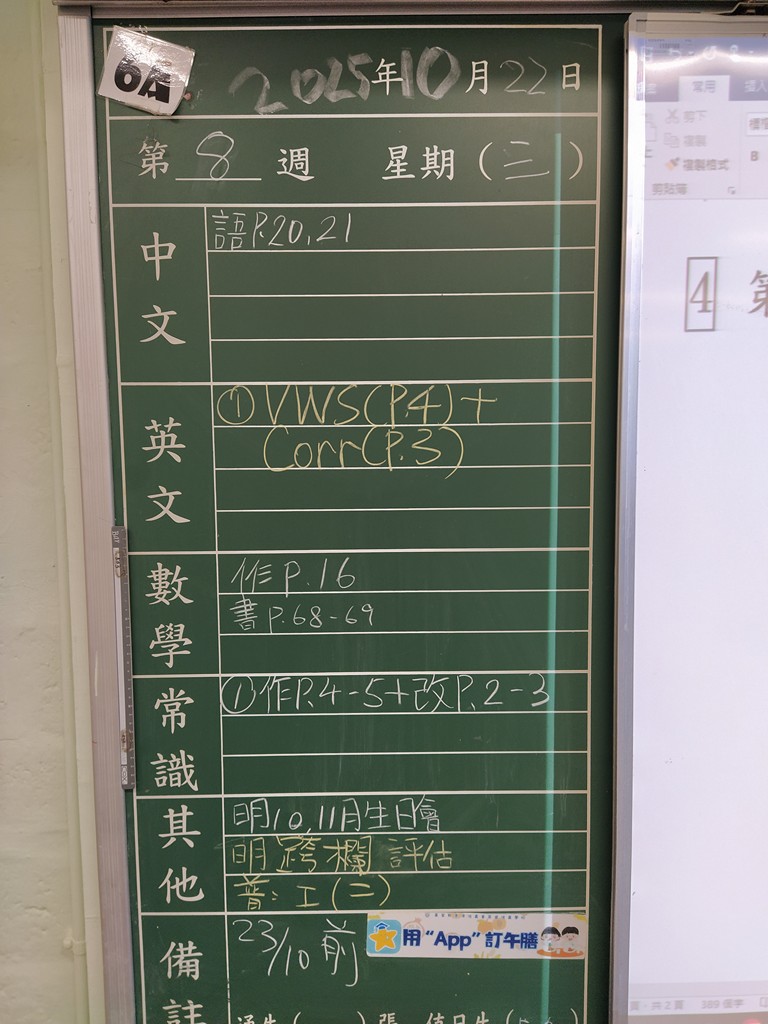 6A
2025年10月22日
第 8 週 星期(三)
中文
語P.20,21
英文
①VWS(P.4)+
Corr(P.3)
數學
作P.16
書P.68-69
常識
①作P.4-5+改P.2-3
其他
明10,11月生日會
明跨欄評估
普:工(二)
備註
23/10前
用“App”訂午膳
常用
插入
剪下
複製
複製格式
剪貼簿
B
4 第
頁,共2頁 389 個字